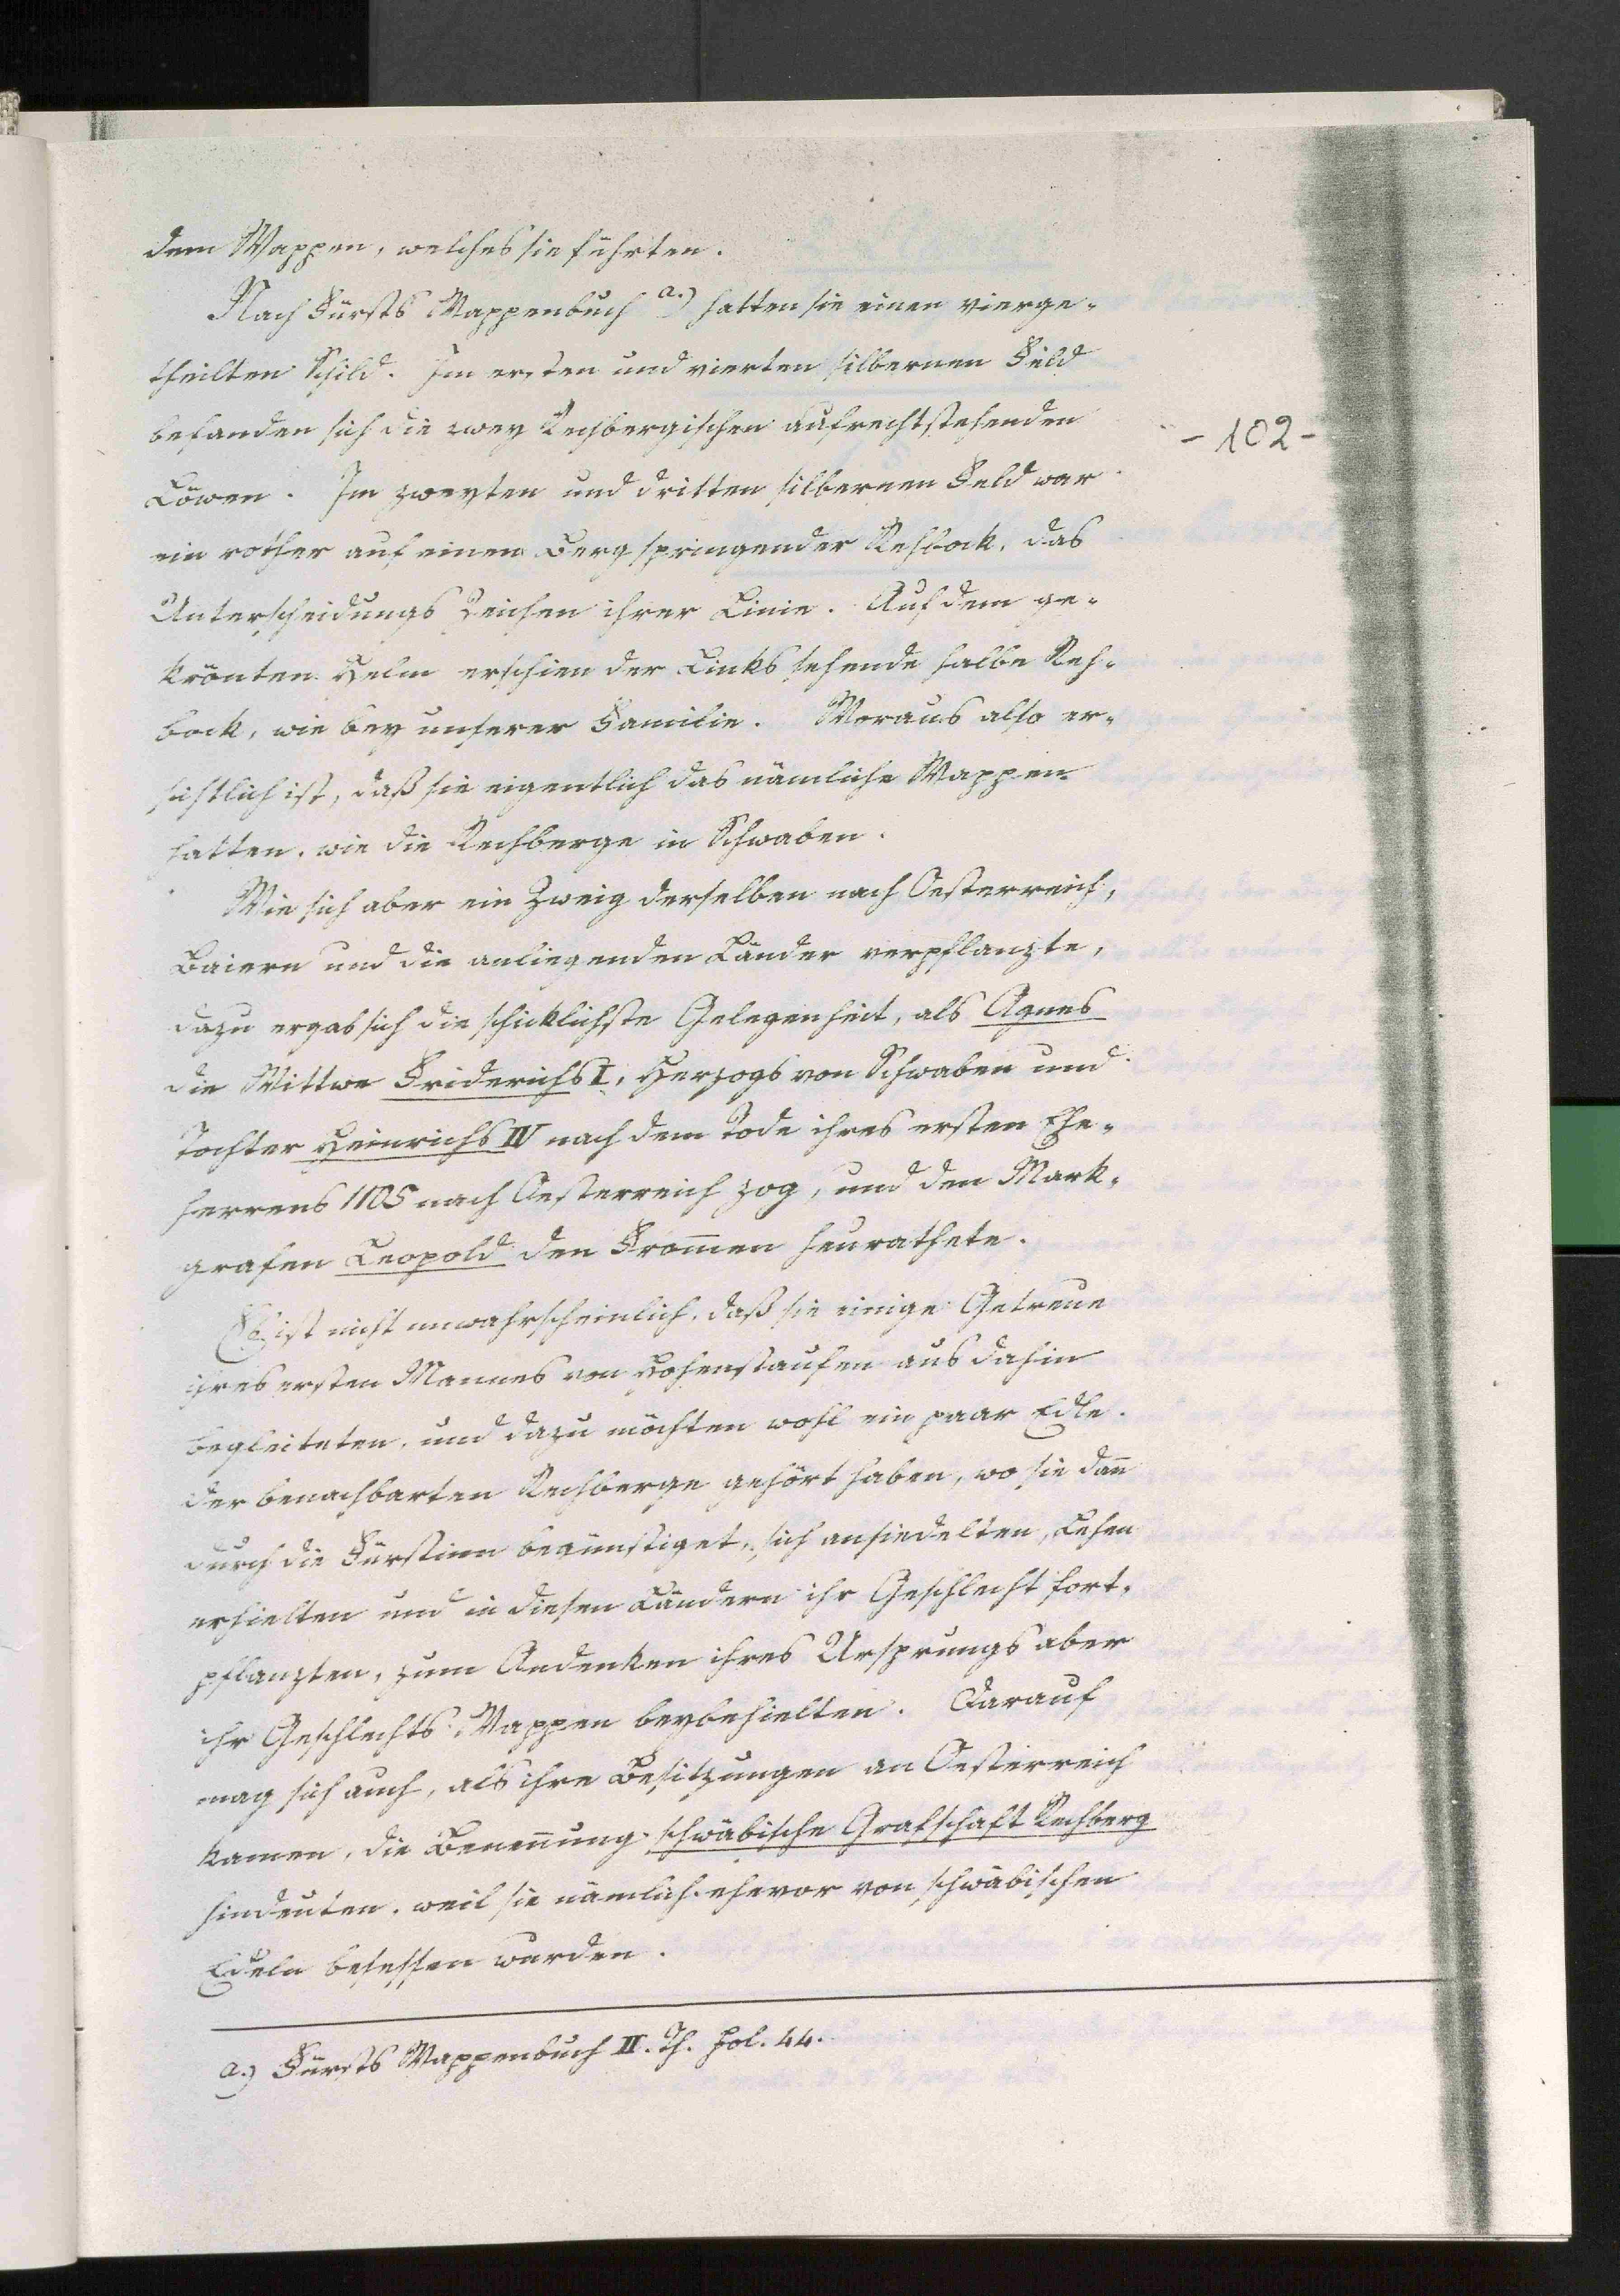 dem Wappen, welches sie führten.
Nach Fürsts Wappenbuch a.) hatten sie einen vierge-
theilten Schild. Im ersten und vierten silbernen Feld
befanden sich die zwey Rechbergischen aufrechtstehenden
- 102 -
Löwen. Im zweyten und dritten silbernen Feld war
ein rother auf einem Berg springender Rehbock, das
Unterscheidungs Zeichen ihrer Linie. Auf dem ge-
krönten Helm erschien der Links sehende halbe Reh-
bock, wie bey unserer Familie. Woraus also er-
sichtlich ist, daß sie eigentlich das nämliche Wappen
hatten, wie die Rechberge in Schwaben.
Wie sich aber ein Zweig derselben nach Oesterreich,
Baiern und die anliegenden Länder verpflanzte,
dazu ergab sich die schicklichste Gelegenheit, als Agnes
die Wittwe Friderichs I, Herzogs von Schwaben und
Tochter Heinrichs IV nach dem Tode ihres ersten Ehe-
herrens 1105 nach Oesterreich zog, und den Mark-
grafen Leopold den From̅en heurathete.
Es ist nicht unwahrscheinlich, daß sie einige Getreue
ihres ersten Mannes von Hohenstaufen aus dahin
begleiteten, und dazu möchten wohl ein paar Edle
der benachbarten Rechberge gehört haben, wo sie dan̅
durch die Fürstinn begünstiget, sich ansiedelten, Lehen
erhielten und in diesen Ländern ihr Geschlecht fort-
pflanzten, zum Andenken ihres Ursprungs aber
ihr Geschlechts Wappen beybehielten. Darauf
mag sich auch, als ihre Besitzungen an Oesterreich
kamen, die Benen̅ung schwäbische Grafschaft Rechberg
hindeuten, weil sie nämlich ehevor von schwäbischen
Edeln besessen wurden.
a.) Fürsts Wappenbuch II. Th. Fol. 44.